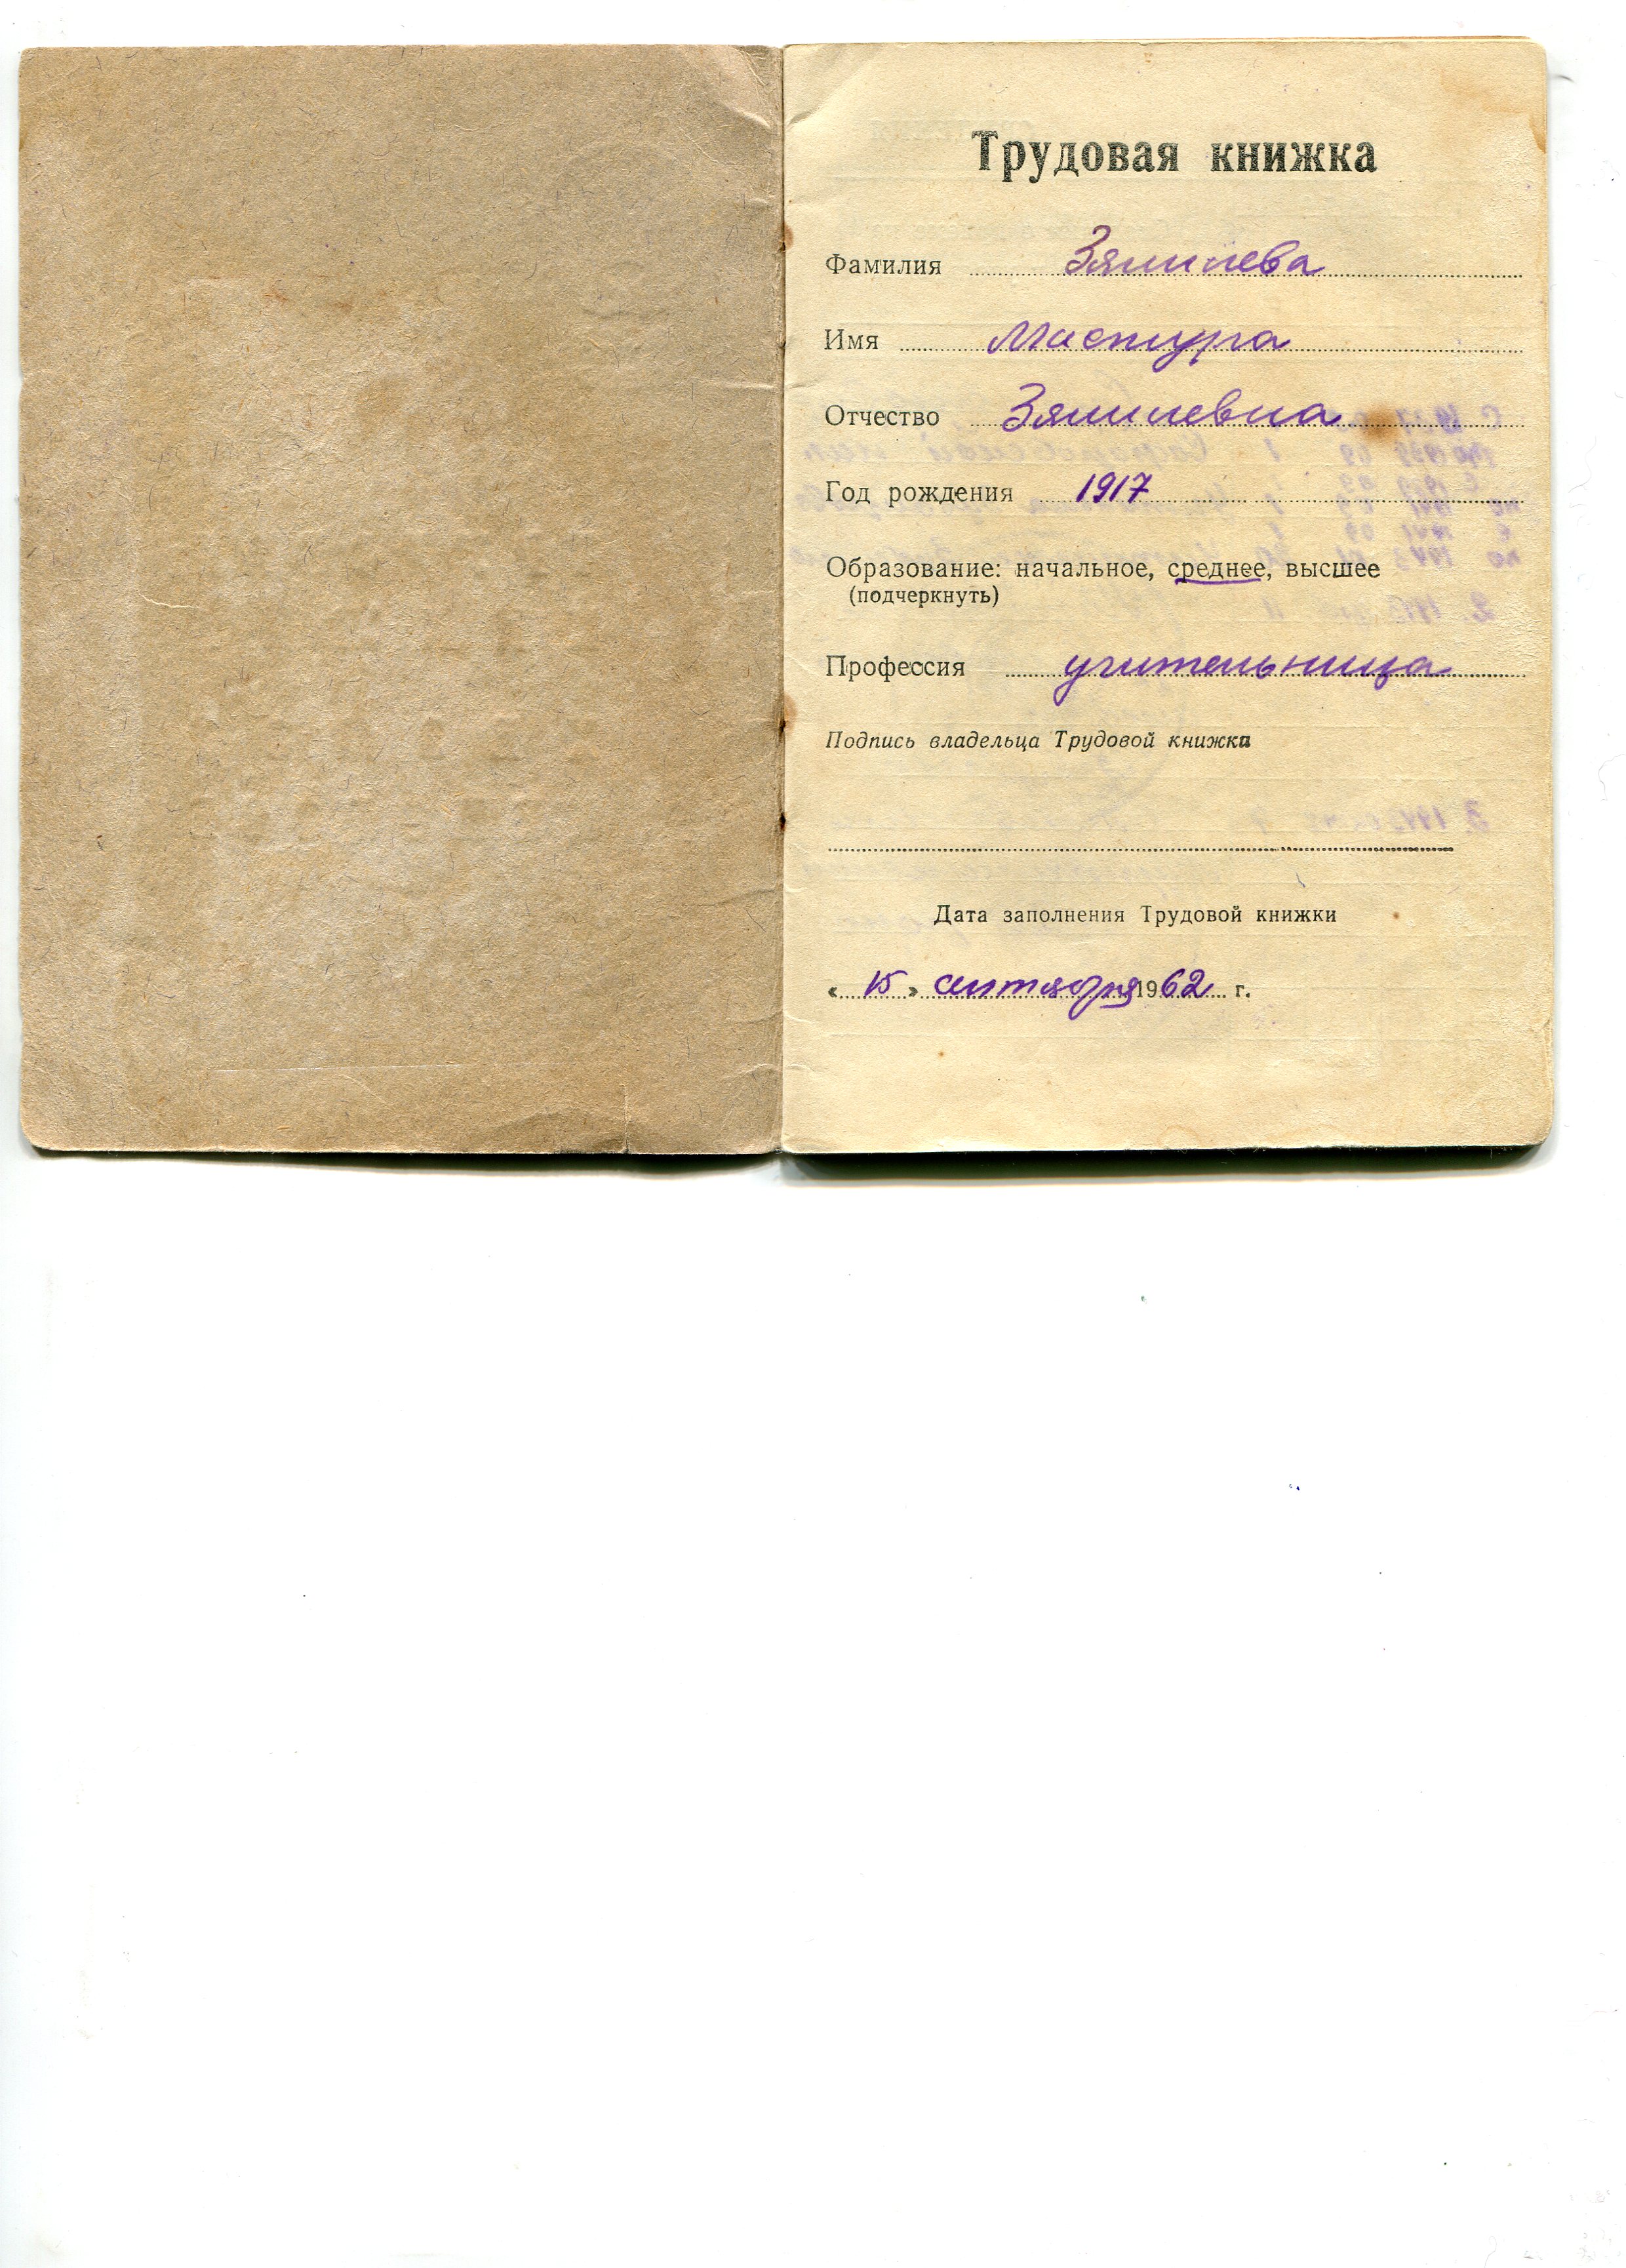 Трудовая книжка
Фамилия Зялилева
Имя Мастура
Отчество Зялилевна
Год рождения 1917
Образование: начальное, среднее, высшее
(подчеркнуть)
Профессия учительница
Подпись владельца Трудовой книжки
Дата заполнения Трудовой книжки
« 15 » сентября 1962 г.